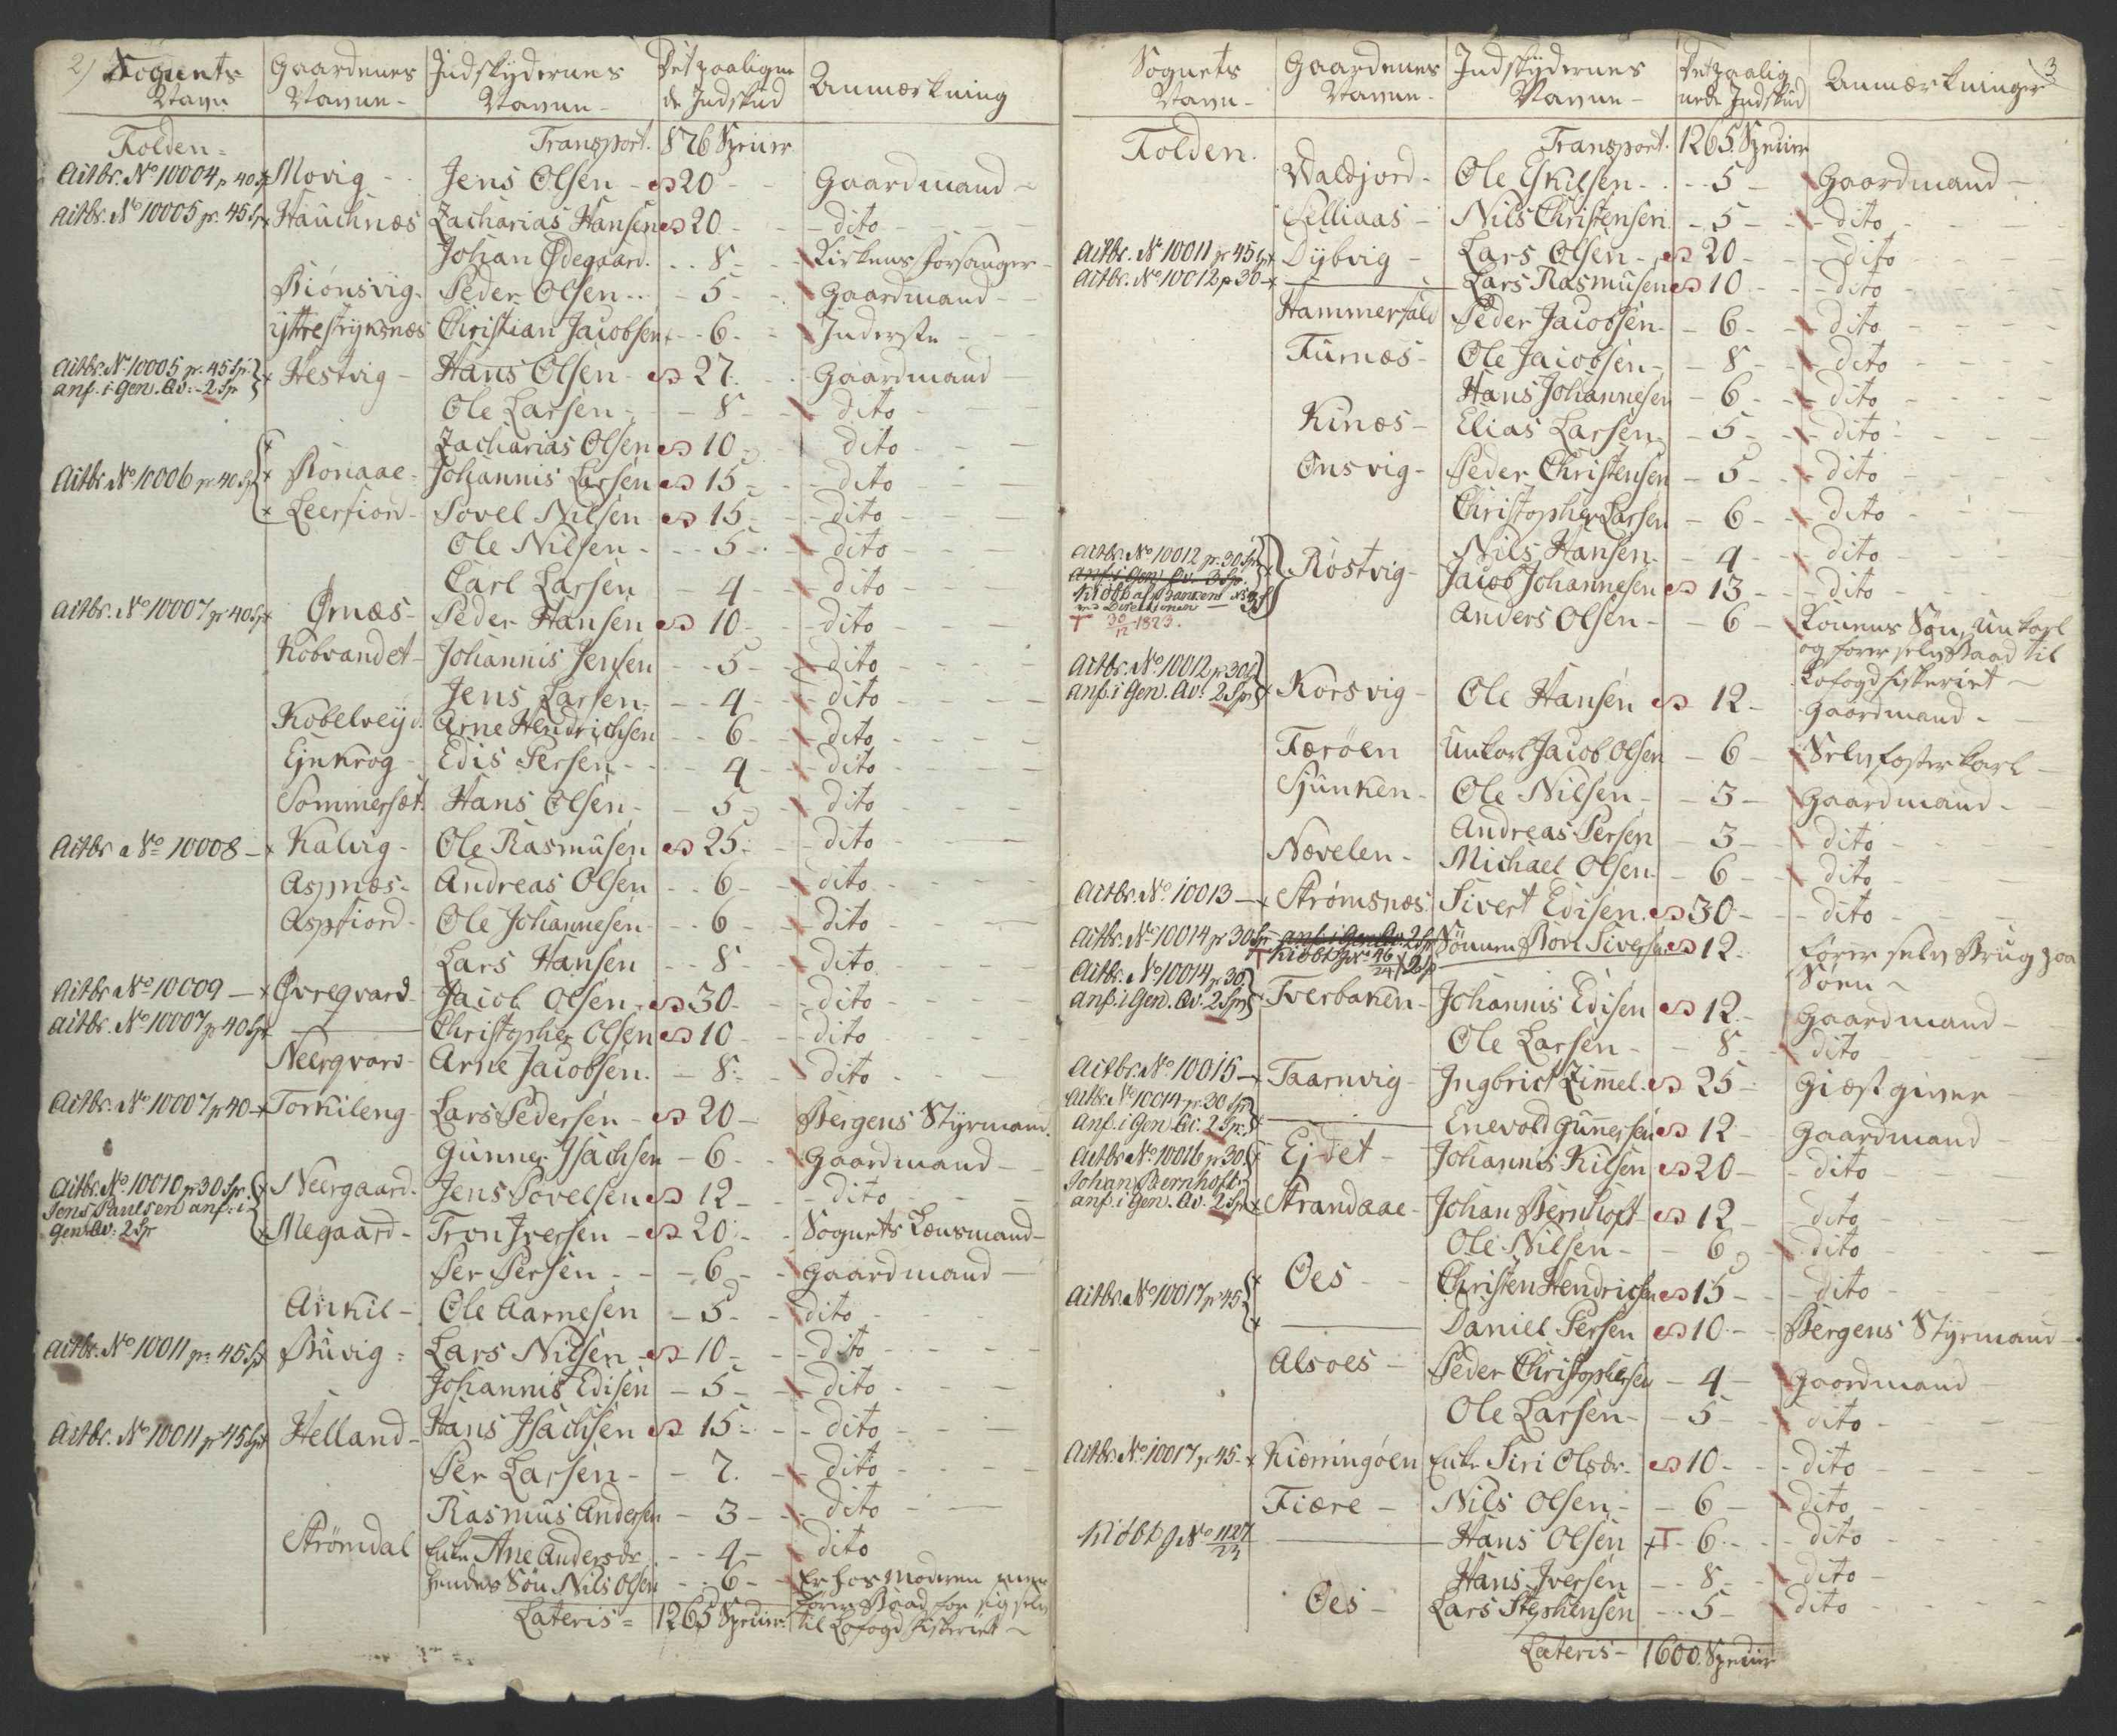 2) Sognets Navn | Gaardenes Navne - | Indskydernes Navne - | Det paaligne de Indskud | Anmærkning
Folden - | Transport. 876 Speciер
Actbr. No 10004 p 40 | Movig - | Jens Olsen - | 20 - | Gaardmand -
Actbr. No 10005 pr. 45 Sp | Hauchnæs | Zacharias Hansen | 20 - | dito
Johan Ødegaard. | 8 - | Kirkens forsanger -
Biønsvig - | Peder Olsen - | 5 - | Gaardmand -
ÿttrestryksnæs | Christian Jacobsen | 6 - | Inderste
Actbr. No 10005 pr. 45 Sp.
anf. i Gen. Qv: - 2 Sp | Hestvig - | Hans Olsen - | 27. | Gaardmand
Ole Larsen - | 8 - | dito
Zacharias Olsen | 10 - | dito
Actbr. No 10006 pr 40 Sp | Bonaae - | Johannis Larsen | 15 - | dito
Leerfiord - | Povel Nilsen | 15 - | dito
Ole Nilsen - | 5 - | dito
Carl Larsen | 4 - | dito
Actbr. No 10007 pr 40 Sp | Ørnæs - | Peder Hansen | 10 - | dito
Kobvandet - | Johannis Jensen | 5 - | dito
Jens Larsen - | 4 - | dito
Kobelveÿd. | Arne Hendrichsen | 6 - | dito
Ejnkrog - | Edis Persen - | 4 - | dito
Sommerset | Hans Olsen - | 5 - | dito
Actbr a No 10008 - | Kalvig - | Ole Rasmusen | 25 - | dito
Aspnæs - | Andreas Olsen | 6 - | dito
Aspfiord - | Ole Johannesen - | 6 - | dito
Lars Hansen | 8 - | dito
Actbr a No 10009 - | Øvreqvard - | Jacob Olsen - | 30 - | dito
Actbr. No 10007 pr 40 Sp | Christopher Olsen | 10 - | dito
Neerqvard - | Arne Jacobsen. | 8 - | dito
Actbr. No 10007 pr 40 - | Torkileng - | Lars Pedersen - | 20 - | Bergens Styrmand.
Gunner Isachsen | 6 - | Gaardmand -
Actbr. No 10010 pr 30 Spr | Neergaard. | Jens Povelsen | 12 - | dito
Jens Paulsen anf. i
Gen. Qv: 2 Sp | Megaard - | Tron Iversen - | 20 - | Sognets Lensmand -
Per Persen - | 6 - | Gaardmand -
Ankil - | Ole Aarnesen | 5 - | dito
Actbr. No 10011 pr 45 Sp | Buvig - | Lars Nilsen - | 10 - | dito
Johannis Edisen | 5 - | dito
Actbr. No 10011 pr 45 Sp | Helland - | Hans Isachsen | 15 - | dito
Per Larsen - | 7. | dito
Rasmus Andersen | 3 - | dito
Strømdal | Enke Ane Andersdr | 4 - | dito
hendes Søn Nils Olsen | 6 - | Er hos Moderen men
fører Baad for sig selv
til Lofogd fiskeriet -
Lateris - | 1265 Specier.
3
Sognets Navn - | Gaardenes Navne - | Indskydernes Navne - | Det paalig nede Indskud | Anmærkninger
Folden. | Transport. 1265 Specier
Waldjord - | Ole Eskilsen - | 5 - | Gaardmand -
Selliaas - | Nils Christensen | 5 - | dito
Actbr. No 10011 pr 45 Sp | Dÿbvig - | Lars Olsen - | 20 - | dito
Actbr. No 10012 p 30 - | Lars Rasmusen | 10 - | dito
Hammerfald | Peder Jacobsen - | 6 - | dito
Furnæs - | Ole Jacobsen - | 8 - | dito
Hans Johannesen | 6 - | dito
Kinæs - | Elias Larsen - | 5 - | dito
Onsvig - | Peder Christensen | 5 - | dito
Christopher Larsen | 6 - | dito
Actbr. No 10012 pr. 30 Sp | Røstvig - | Nils Hansen - | 4 - | dito
anf. i Gen Qv. 3 Sp.
Kiøbt af Banken
ved Direktionen | Jacob Johannesen | 13 - | dito
30/12 1823. | Anders Olsen - | 6 - | Konens Søn, Unkarl
og fører selv Baad til
Lofogd fiskeriet -
Actbr. No 10012 pr 30
anf. i Gen. Qv: 2 Sp | Korsvig - | Ole Hansen | 12 - | Gaardmand -
Færøen | Unkarl Jacob Olsen | 6 - | Selvfoster karl -
Sjunken - | Ole Nilsen - | 3 - | Gaardmand -
Andreas Persen | 3 - | dito
Nævelen - | Michael Olsen - | 6 - | dito
Actbr. No. 10013 - | Strømsnæs. | Sivert Edisen. | 30 - | dito
Actbr. No 10014 pr 30 Sp | anf. i Gen Qv. 2 Sp | Sønnen Bort Siversen | 12. | fører selv Brug paa
Kiøbt g No 46/24 2 Sp | Søen -
Actbr. No 10014 pr 30.
anf. i Gen. Qv. 2 Sp | Tverbakken - | Johannis Edisen | 12. | Gaardmand -
Ole Larsen - | 8 - | dito
Actbr. No 10015 - | Taarnvig - | Ingbrict Zimmel. | 25 - | Giæstgiver -
Actbr. No 10014 pr 30 Sp
Anf. i Gen. Qv. 2 Sp. | Enevold Gunnersen | 12 - | Gaardmand
Actbr. No 10016 pr 30 | Ejdet - | Johannis Kilsen | 20 - | dito
Johan Bernhoft
anf. i Gen. Qv. 2 Sp | Strandaae - | Johan Bernhoft - | 12 - | dito
Ole Nilsen - | 6 - | dito
Actbr. No 10017 pr 45 | Oes - | Christen Hendricsen | 15 - | dito
Daniel Persen | 10 - | Bergens Styrmand -
Alsoes - | Peder Christophersen | 4 - | Gaardmand
Ole Larsen - | 5 - | dito
Actbr. No 10017 pr 45 - | Kiærringøen | Enke Siri Olsdr. | 10 - | dito
Fiære - | Nils Olsen - | 6 - | dito
Kiøbt g No 1127/23 | Hans Olsen | 6 - | dito
Hans Iversen | 8 - | dito
Oes - | Lars Stephensen | 5 - | dito
Lateris - | 1600. Specier